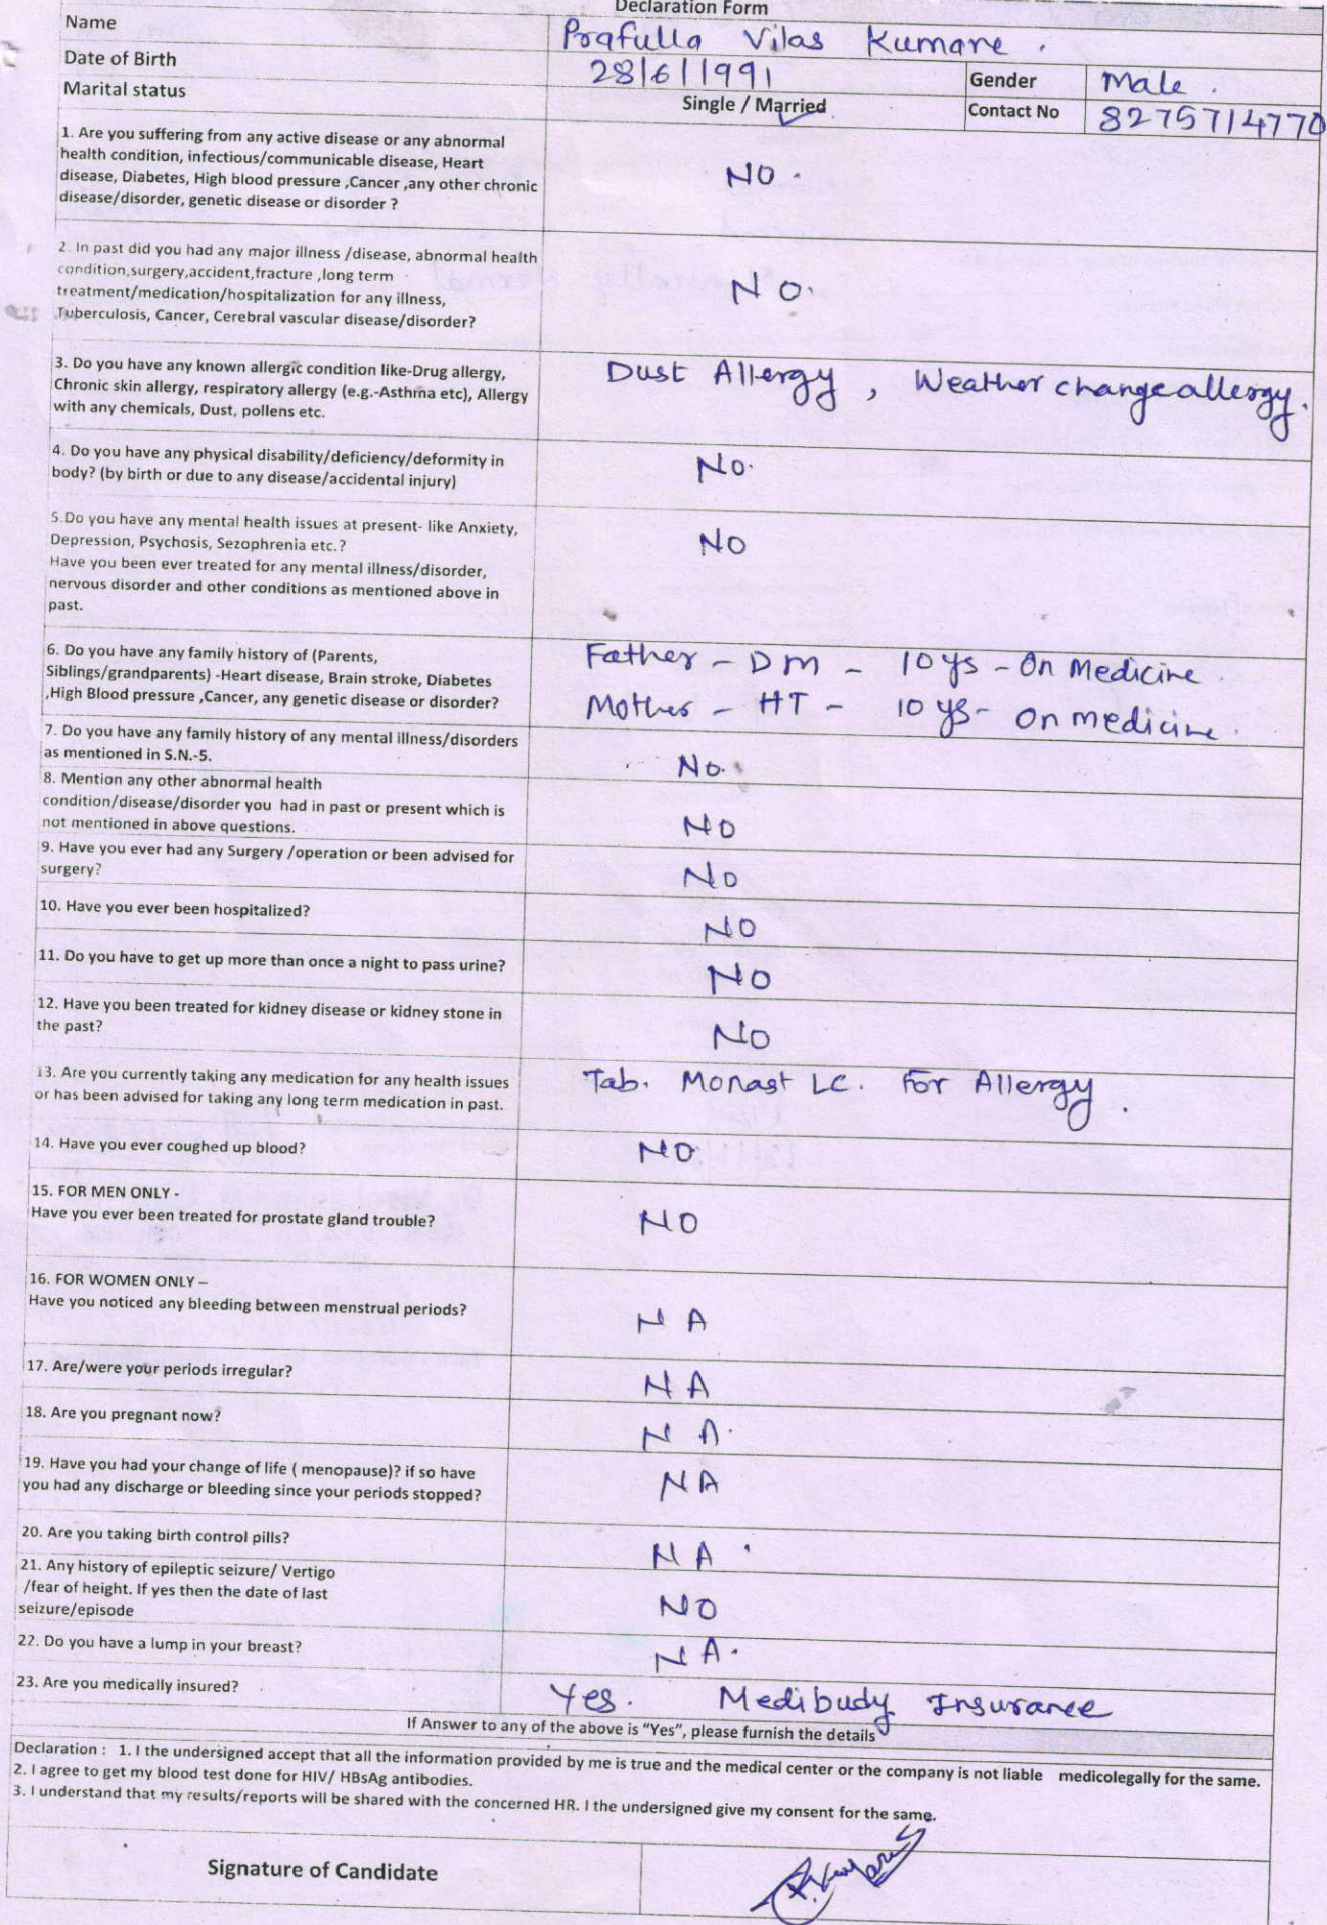 Declaration Form
Name Prafulla Vilas Kumare .
Date of Birth 28/6/1991 Gender Male .
Marital status Single / Married Contact No 8275714770
1. Are you suffering from any active disease or any abnormal
health condition, infectious/communicable disease, Heart
disease, Diabetes, High blood pressure ,Cancer ,any other chronic
disease/disorder, genetic disease or disorder ?
NO .
2. In past did you had any major illness /disease, abnormal health
condition,surgery,accident,fracture ,long term
treatment/medication/hospitalization for any illness,
Tuberculosis, Cancer, Cerebral vascular disease/disorder?
No.
3. Do you have any known allergic condition like-Drug allergy,
Chronic skin allergy, respiratory allergy (e.g.-Asthma etc), Allergy
with any chemicals, Dust, pollens etc.
Dust Allergy , Weather change allergy.
4. Do you have any physical disability/deficiency/deformity in
body? (by birth or due to any disease/accidental injury)
No.
5.Do you have any mental health issues at present- like Anxiety,
Depression, Psychosis, Sezophrenia etc.?
Have you been ever treated for any mental illness/disorder,
nervous disorder and other conditions as mentioned above in
past.
NO
6. Do you have any family history of (Parents,
Siblings/grandparents) -Heart disease, Brain stroke, Diabetes
,High Blood pressure ,Cancer, any genetic disease or disorder?
Father - DM - 10 ys - On Medicine .
Mother - HT - 10 ys - on medicine .
7. Do you have any family history of any mental illness/disorders
as mentioned in S.N.-5.
No.
8. Mention any other abnormal health
condition/disease/disorder you had in past or present which is
not mentioned in above questions.
NO
9. Have you ever had any Surgery /operation or been advised for
surgery?
No
10. Have you ever been hospitalized?
NO
11. Do you have to get up more than once a night to pass urine?
NO
12. Have you been treated for kidney disease or kidney stone in
the past?
NO
13. Are you currently taking any medication for any health issues
or has been advised for taking any long term medication in past.
Tab. Monast LC. For Allergy .
14. Have you ever coughed up blood?
NO
15. FOR MEN ONLY -
Have you ever been treated for prostate gland trouble?
NO
16. FOR WOMEN ONLY –
Have you noticed any bleeding between menstrual periods?
N A
17. Are/were your periods irregular?
N A
18. Are you pregnant now?
N A.
19. Have you had your change of life ( menopause)? if so have
you had any discharge or bleeding since your periods stopped?
NA
20. Are you taking birth control pills?
NA .
21. Any history of epileptic seizure/ Vertigo
/fear of height. If yes then the date of last
seizure/episode
NO
22. Do you have a lump in your breast?
N A.
23. Are you medically insured?
Yes. Medibudy Insurance
If Answer to any of the above is “Yes”, please furnish the details
Declaration : 1. I the undersigned accept that all the information provided by me is true and the medical center or the company is not liable medicolegally for the same.
2. I agree to get my blood test done for HIV/ HBsAg antibodies.
3. I understand that my results/reports will be shared with the concerned HR. I the undersigned give my consent for the same.
Signature of Candidate